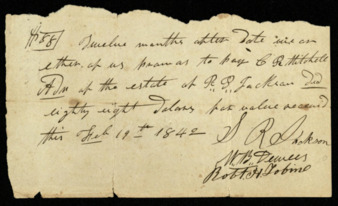 $88 Twelve months after date we or
ether of us promas to pay C R Mitchell
Adm of the estate of R. P. Jackson Decd
eighty eight Dolars for value received
this Feb 19th 1842
S R Jackson
W. B.
Robt H